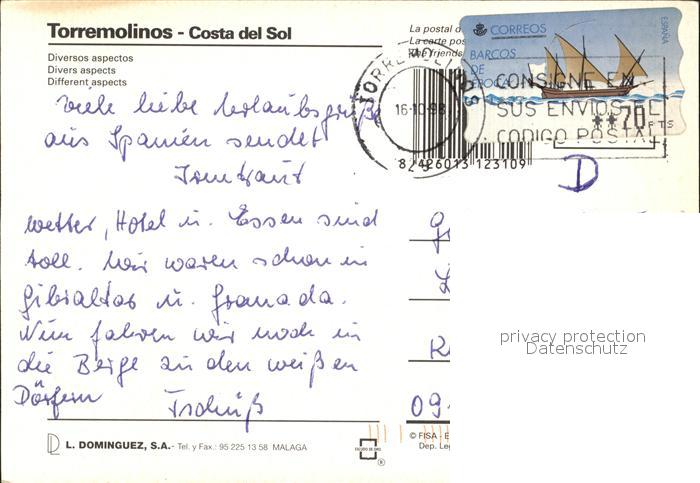 Torremolinos - Costa del Sol
Diversos aspectos
Divers aspects
Different aspects
La postal d
La carte pos
The friends
CORREOS
ESPAÑA
BARCOS
DE
EPOCA
TORREMOLINOS
16-10-98
CONSIGNE EN
SUS ENVIOS EL
CODIGO POSTAL
**70
PTS
8 426013 123109
D
viele liebe Urlaubsgrüße
aus Spanien sendet
Irmtraut
Wetter, Hotel u. Essen sind
toll. Wir waren schon in
Gibraltar u. Granada.
Nun fahren wir noch in
die Berge zu den weißen
Dörfern Tschüß
09
privacy protection
Datenschutz
L. DOMINGUEZ, S.A. - Tel. y Fax.: 95 225 13 58 MALAGA
ESCUDO DE ORO
®
© FISA - E
Dep. Leg